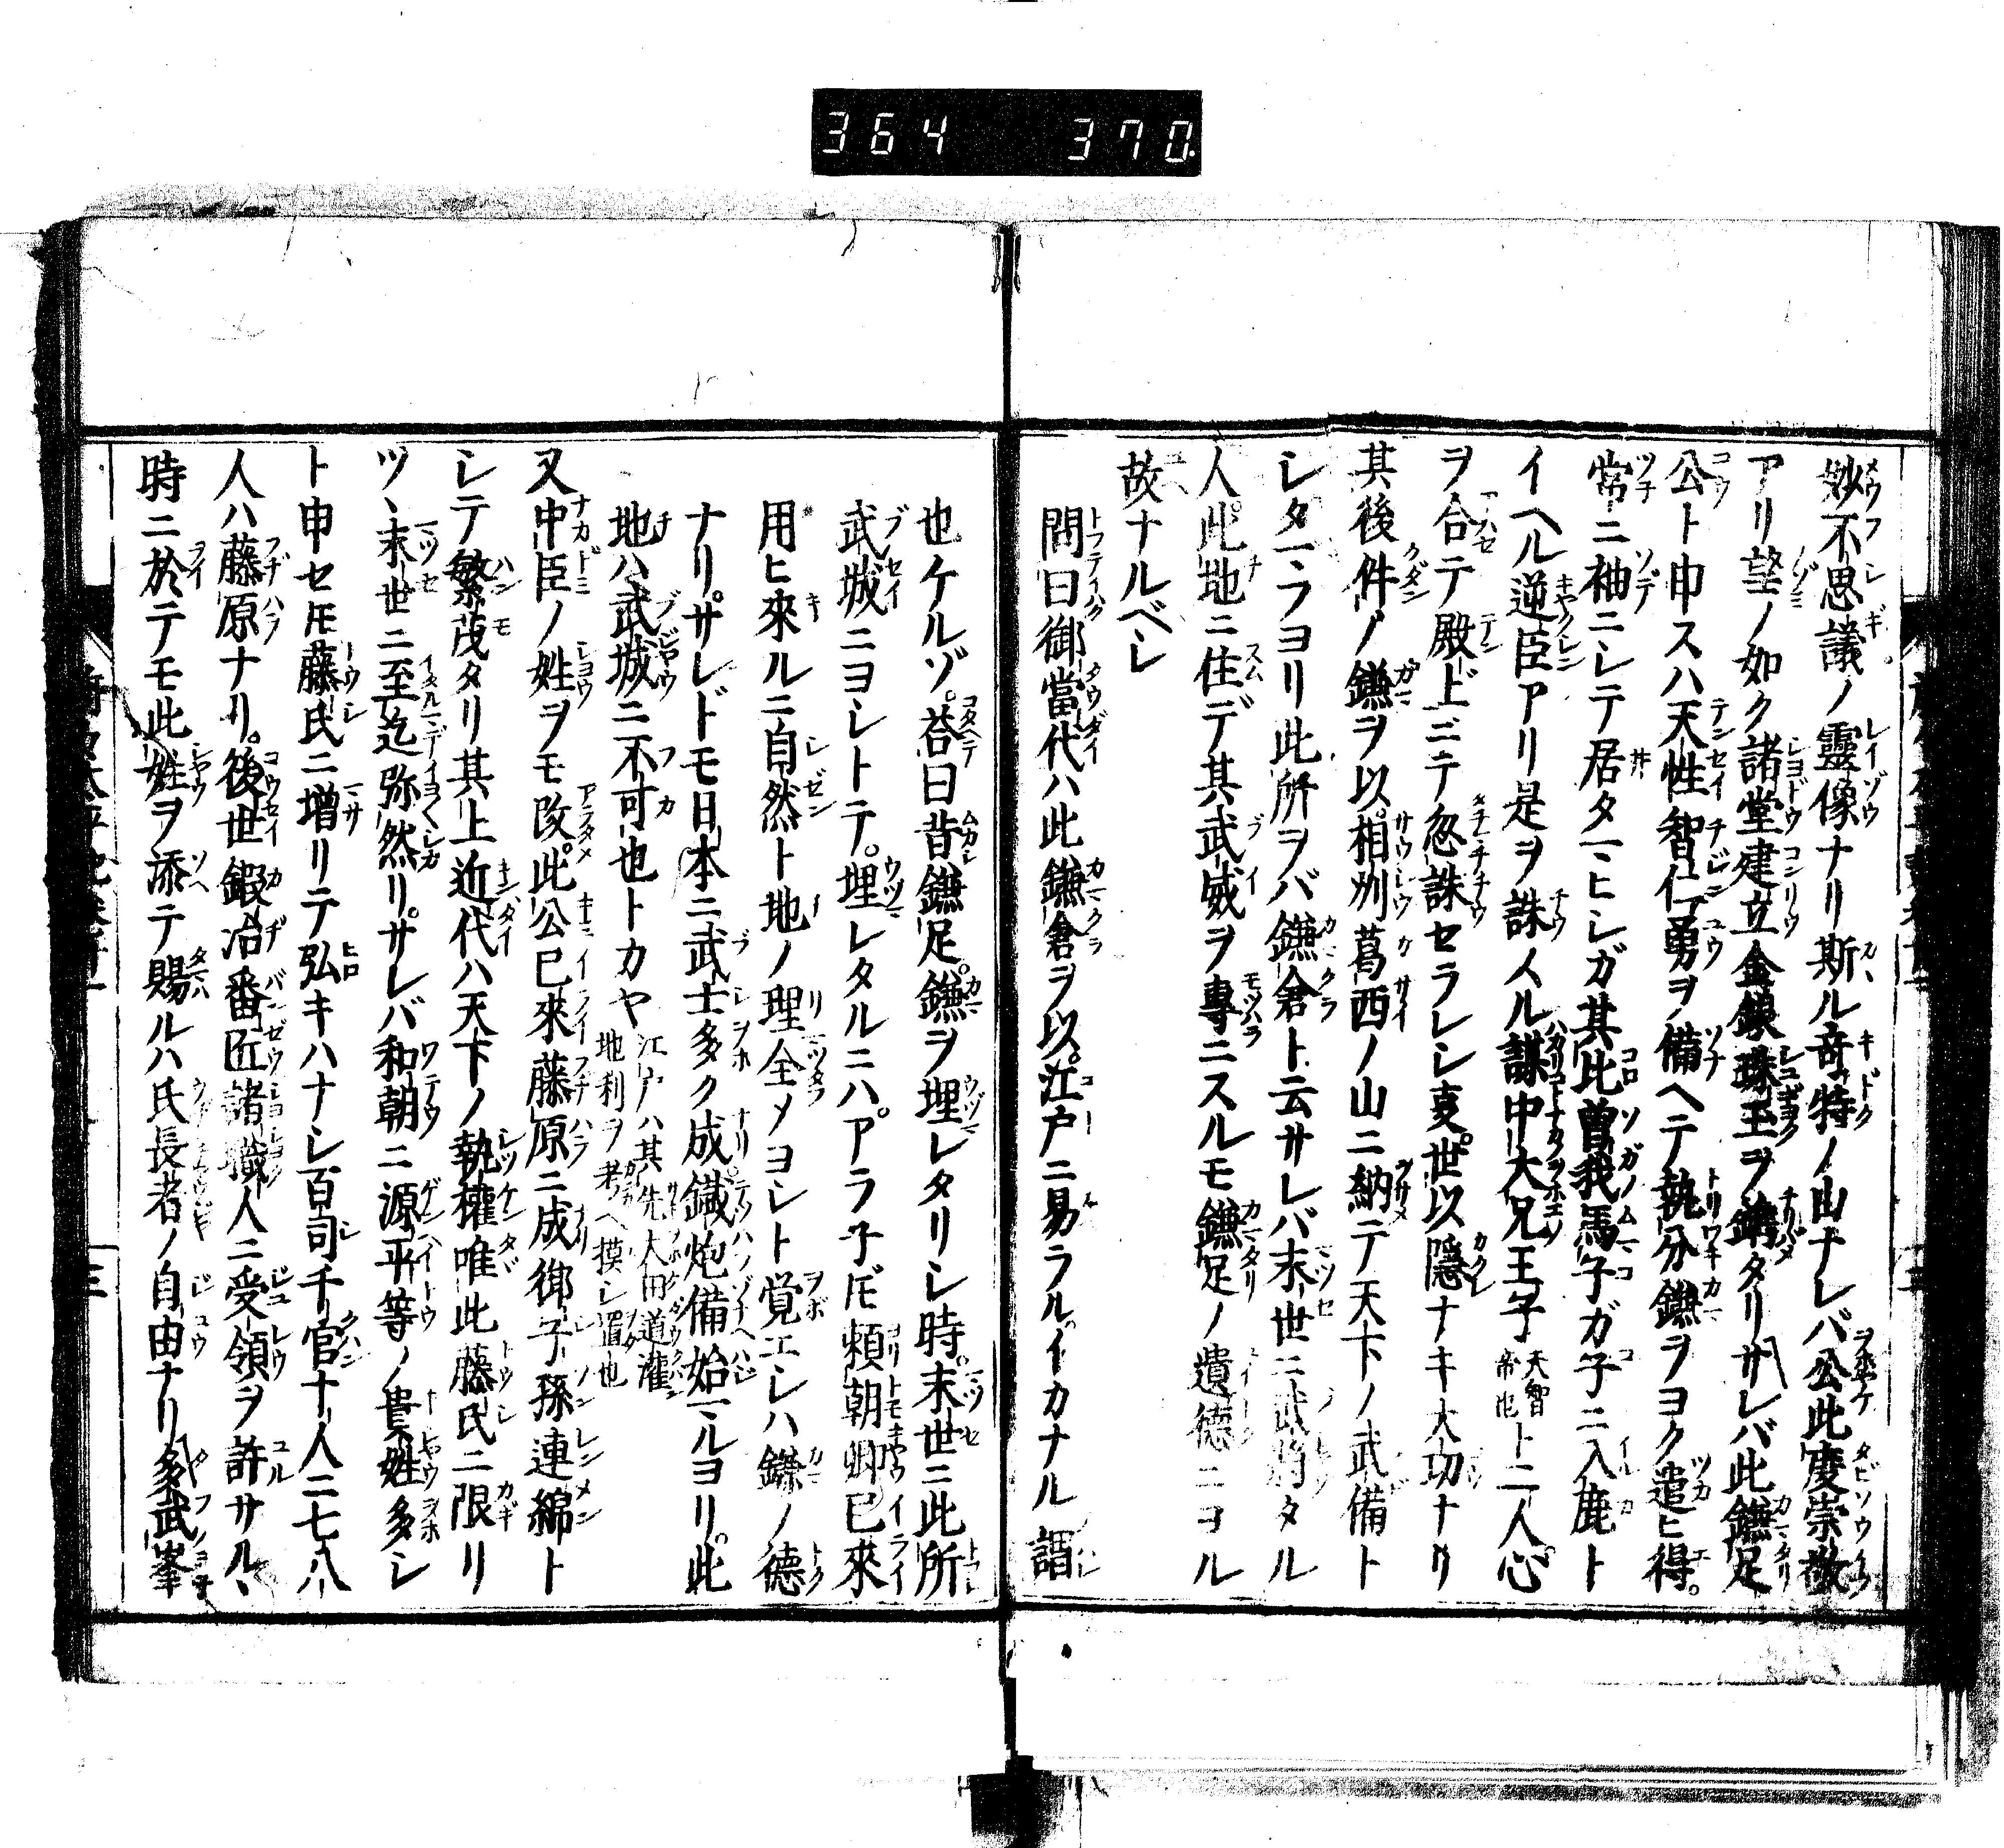 364 370
妙不思議ノ靈像ナリ斯ル竒特ノ山ナレバ公此度崇敬
アリ望ノ如ク諸堂建立金銀珠玉ヲ鏤タリサレバ此鎌足
公ト申スハ天性智仁勇ヲ備ヘテ執分鎌ヲヨク遣ヒ得。
常ニ袖ニシテ居タマヒシガ其比曽我馬子ガ子ニ入鹿ト
イヘル逆臣アリ是ヲ誅スル謀中大兄王子天智帝也ト二人心
ヲ合テ殿上ニテ忽誅セラレシ叓世以隱ナキ大功ナリ
其後件ノ鎌ヲ以。相州葛西ノ山ニ納テ天下ノ武備ト
シタマフヨリ此所ヲバ鎌倉ト云サレバ末世ニ武将タル
人。此地ニ住デ其武威ヲ專ニスルモ鎌足ノ遺德ニヨル
故ナルベシ
問曰御當代ハ此鎌倉ヲ以。江戸ニ易ラル。イカナル謂
也ケルゾ。荅曰昔鎌足。鎌ヲ埋レタリシ時。末世ニ此所
武城ニヨシトテ。埋レタルニハ。アラ子𪜈頼朝卿已來
用ヒ來ルニ自然ト地ノ理全メヨシト覚エシハ鎌ノ德
ナリ。サレドモ日本ニ武士多ク成。鐵炮備始マルヨリ。此
地ハ武城ニ不可也トカヤ江戸ハ其先太田道灌地利ヲ考ヘ摸シ置也
又中臣ノ姓ヲモ改。此公已來藤原ニ成御子孫連綿ト
シテ繁茂タリ其上近代ハ天下ノ執權唯此藤氏ニ限リ
ツヽ末世ニ至迄弥然リ。サレバ和朝ニ源平等ノ貴姓多シ
ト申セ𪜈藤氏ニ增リテ弘キハナシ百司千官十人ニ七八
人ハ藤原ナリ。後世鍛冶番匠諸職人ニ受領ヲ許サルヽ
時ニ於テモ此姓ヲ添テ賜ルハ氏長者ノ自由ナリ多武峯
三